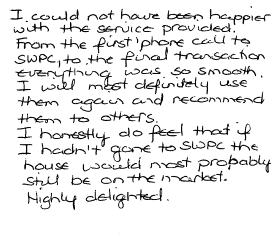 I could not have been happier
with the service provided.
From the first 'phone call to
SWPC, to the final transaction
everything was so smooth.
I will most definitely use
them again and recommend
them to others.
I honestly do feel that if
I hadn't gone to SWPC the
house would most probably
still be on the market.
Highly delighted.